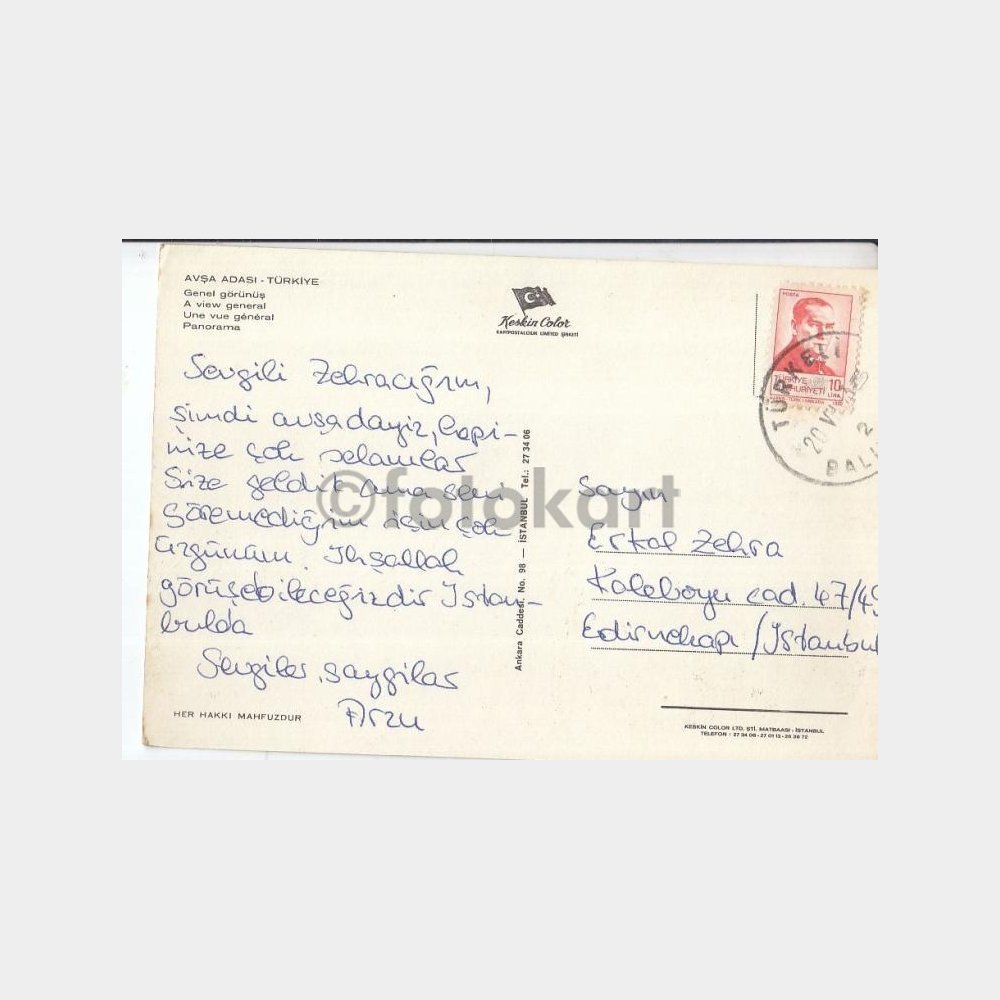 AVŞA ADASI - TÜRKİYE
Genel görünüş
A view general
Une vue général
Panorama
Keskin Color
KARTPOSTALCILIK LIMITED ŞİRKETİ
POSTA
TÜRKİYE CUMHURİYETİ
10
LİRA
TÜRKELİ
20
2
BALI
Sevgili Zehracığım,
şimdi avşadayız, hepi-
nize çok selamlar
Size geldik ama seni
göremediğim için çok
üzgünüm. Ihşallah
görüşebileceğizdir Istan-
bulda
Sevgiler, saygılar
Arzu
©fotokart
Ankara Caddesi. No. 98 — İSTANBUL Tel.: 27 34 06
Sayın
Erkal Zehra
Kaleboyu cad. 47/49
Edirnekapı / Istanbul
HER HAKKI MAHFUZDUR
KESKİN COLOR LTD. ŞTİ. MATBAASI - İSTANBUL
TELEFON : 27 34 06 - 27 01 13 - 26 36 72